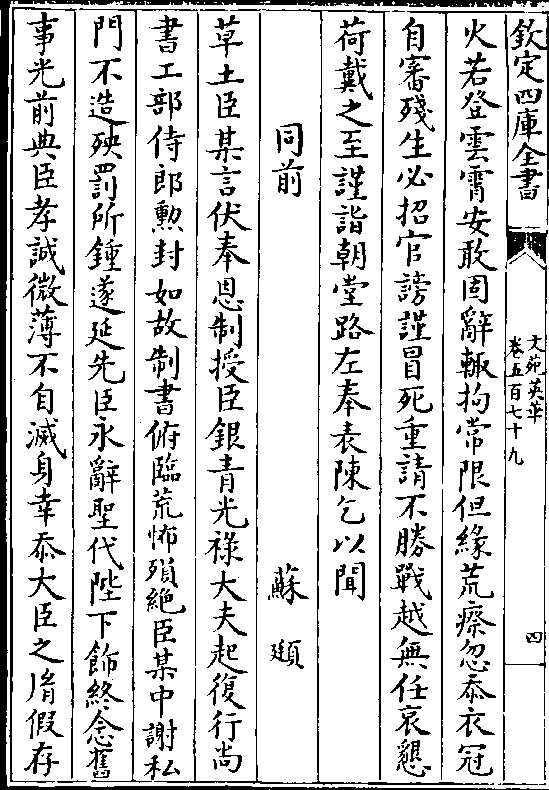 欽定四庫全書
文苑英華
卷五百七十九
四
火若登雲霄安敢固辭輙拘常限但緣荒瘵忽忝衣冠
自審殘生必招官謗謹冒死重請不勝戰越無任哀懇
荷戴之至謹詣朝堂路左奉表陳乞以聞
同前
蘇頲
草土臣某言伏奉恩制授臣銀青光祿大夫起復行尚
書工部侍郎勲封如故制書俯臨荒怖殞絶臣某中謝私
門不造殃罰所鍾遂延先臣永辭聖代陛下飾終念舊
事光前典臣孝誠微薄不自滅身幸忝大臣之胤假存